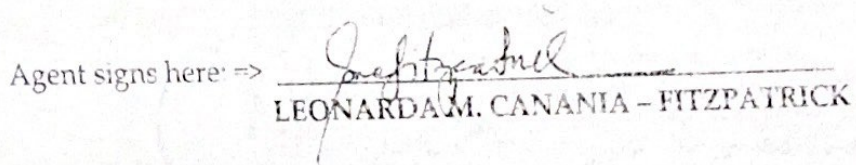 Agent signs here: =>
LEONARDA M. CANANIA – FITZPATRICK